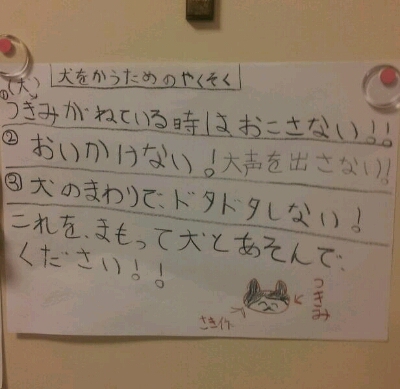 犬をかうためのやくそく
①(犬)
つきみがねている時はおこさない!!
②おいかけない!大声を出さない!!
③犬のまわりで、ドタドタしない!
これを、まもって犬とあそんで、
ください!!
つきみ